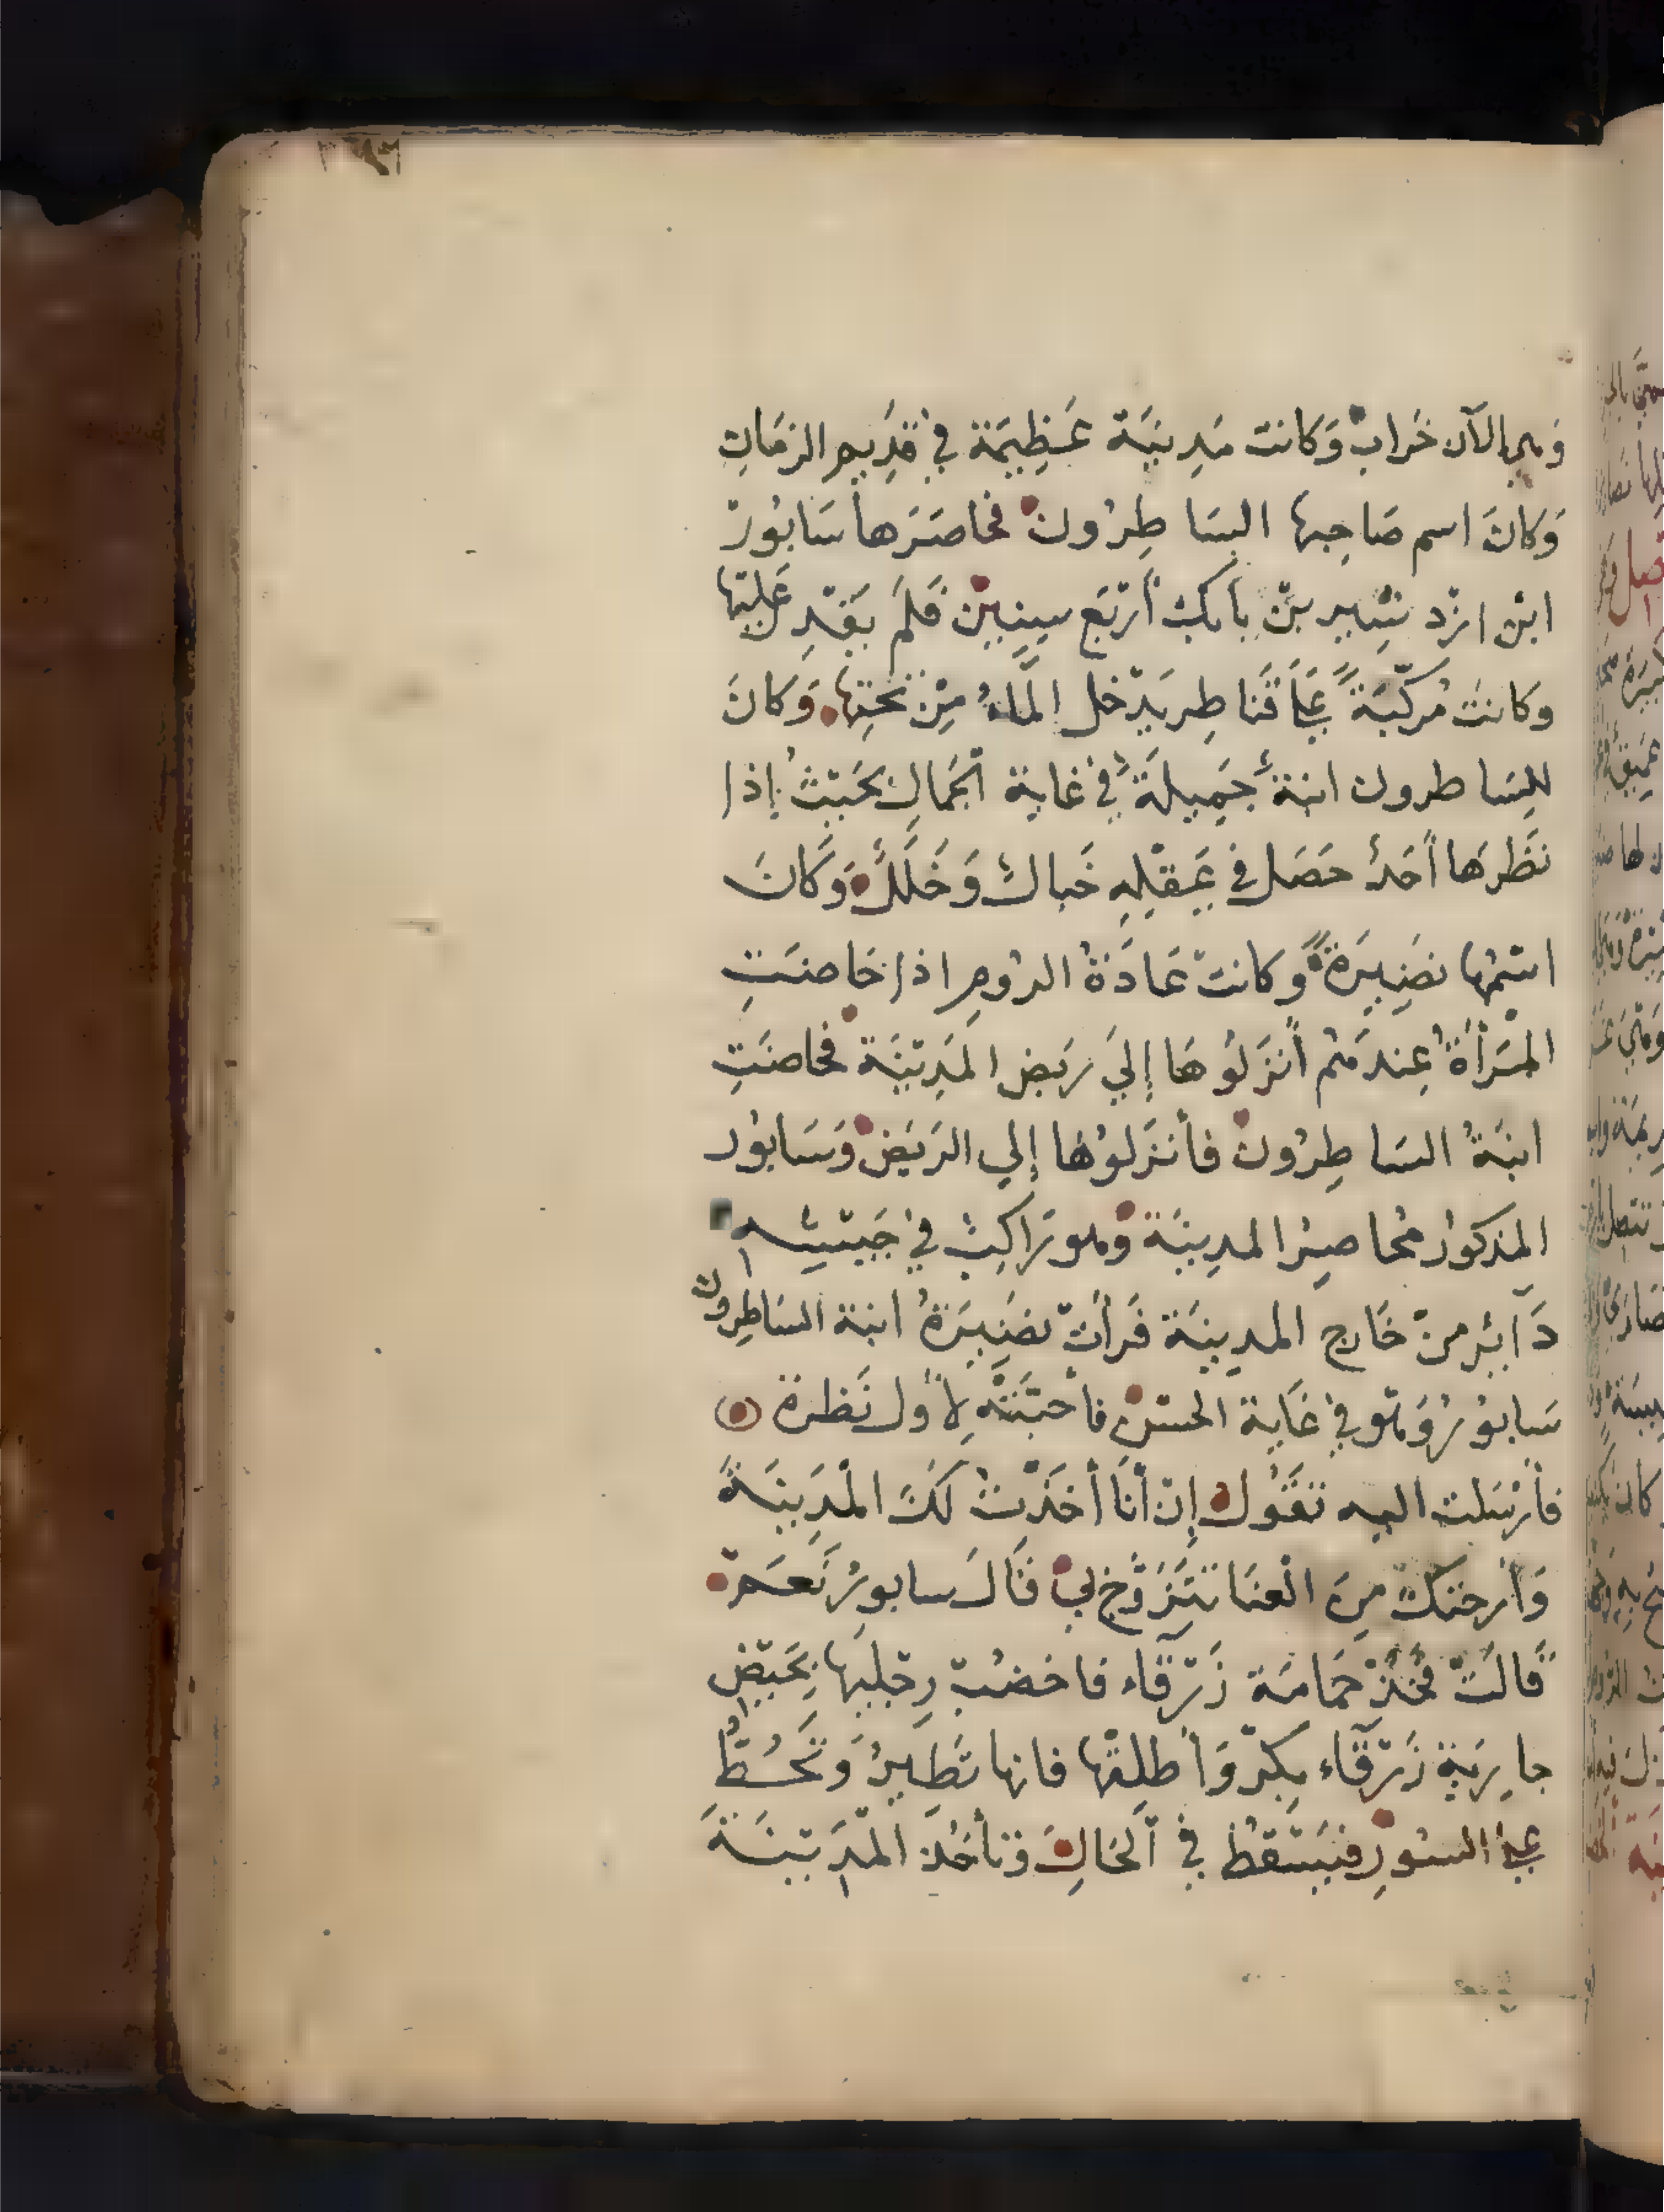 وَهي الآن خَرابْ وَكانت مَدِينَة عَظِيمَة في قدِيم الزمَانِ
وَكانَ اسم صَاحِبها السَاطِرُون فحَاصَرَها سَابُورْ
ابْن ازْدشِير بن بابكْ أرْبَع سِنِينْ فَلَمْ يَقْدِر عَليْها
وَكانتْ مُركّبَةً عَلَى قَنَاطِر يَدْخل المَاءُ مِنْ تحْتِها وَكانَ
للِسَاطرون ابنة جَمِيلَةً في غاية الجَمالِ بحَيْثُ إذا
نَظرهَا أحَدٌ حَصَل في عَقْلِهِ خَبالٌ وَخَلَلٌ وَكَانَ
اسْمُها نضِيرَةً وكانتْ عَادَةُ الرُوم اذا حَاضَتِ
المَرْأةُ عِندهُم أنْزَلُوهَا إليَ رَبَض المَدِيْنَة فحَاضَتِ
ابنَةُ السَاطِرُونْ فأنزَلوُها إلي الرَبَض وَسَابوُر
المَذكوُر مُحَاصِرُ المدِينَة وَهو رَاكِبْ في جَيْشِه
دَآيْر منْ خَارج المدِينَة فَرأتْ نضَيِرَةُ ابنة السَاطِرون
سَابوُرُ وَهْو في غَاية الحسْن فأحبَّتهُ لِأول نَظرة
فأرْسَلت اليه تقَوُل إن أنَا أخَذْتُ لَكَ المْدَينَةَ
وَارحتكْ مِنَ العنَا تتَزَوَّج بي قَالَ سابورُ نَعَمْ
قَالَتْ فخُذْ حَمامَة زَرْقآء فاخضبْ رِجْليها بحَيْضِ
جارِيَة زَرْقآء بكْر وَأطلِقْها فانها تَطيرُ وَتَحُطُّ
على السُورِ فيَسْقطُ في الحَالِ وَتأخذ المْدَيْنَةَ